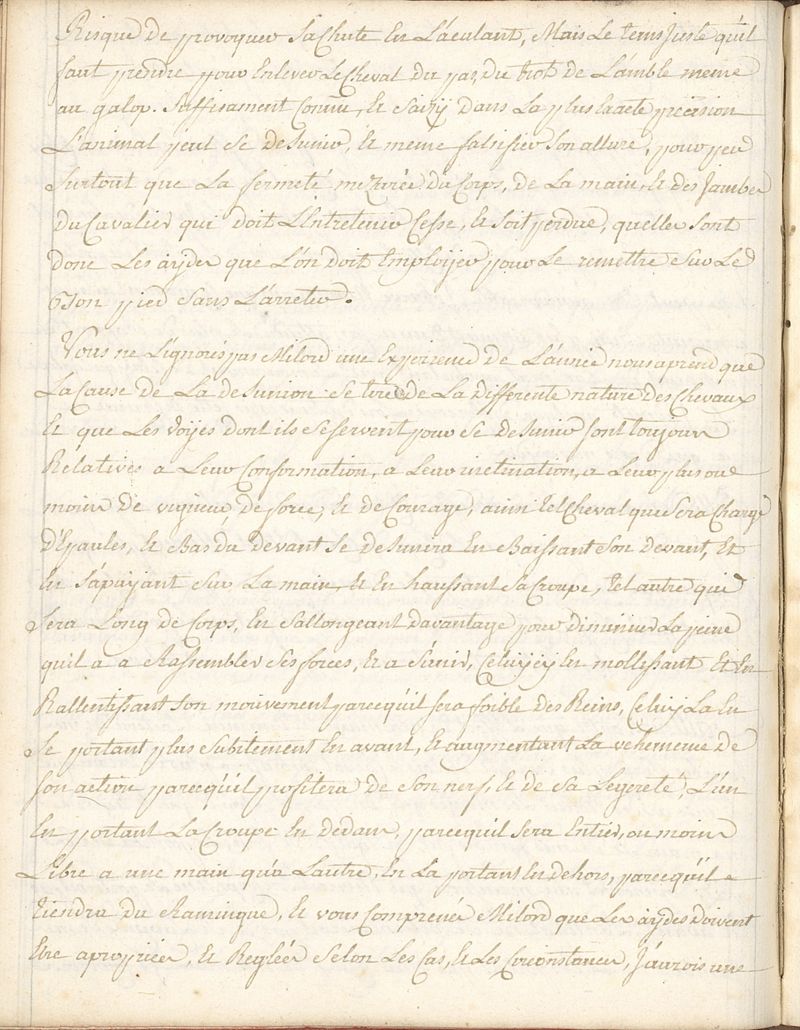 Risque de provoquer sa chute En L'aculant, Mais Le tems Juste qu'il
faut prendre pour Enlever Le Cheval du pas, du trot de L'amble meme
au galop. Suffisament Connu, & Saizy dans La plus Exacte précision
L'animal peut se desunir, & meme falsifier son allure, pour peu
surtout que La fermeté mezurée du Corps, de La main, & des Jambes
du Cavalier qui doit L'Entretenir Cesse, & soit perdue, quelles sont
donc Les aÿdes que L'on doit Emploÿer pour Le remettre sur Le
Bon pied sans L'arreter.
Vous ne L'ignorés pas Milord une Experience de L'année nous aprend que
La Cause de La desunion se tire de La differente nature des Chevaux
& que Les voÿes dont ils se servent pour se desunir sont toujours
Relatives a Leur Conformation, a Leur inclination, a Leur plus ou
moins de vigueur, de force, & de Courage, ainsi tel Cheval que sera Chargé
d'Epaules, & Bas du devant se desunira En Baissant son devant, Et
En s'apuÿant sur La main, & En haussant sa Croupe, tel autre qui
sera Long de Corps, En sallongeant davantage pour diminuer La peine
quil a a Rassembler ses forces, & a s'unir, Celuÿ cÿ En mollissant Et En
Rallentissant son mouvement parcequ'il sera foible des Reins, Celuÿ La En
se portant plus subitement En avant, & augmentant La vehemence de
son action parcequ'il profitera de son nerf, & de sa Legereté, L'un
En portant La Croupe En dedans, parcequil sera Entier, ou moins
Libre a une main qu'a Lautre, En La portant En dehors, parcequ'il
tiendra du Ramingue, & vous Comprenés Milord que Les aÿdes doivent
Etre apropriées, & Reglées selon Les Cas, & Les Circonstances, J'aurois une